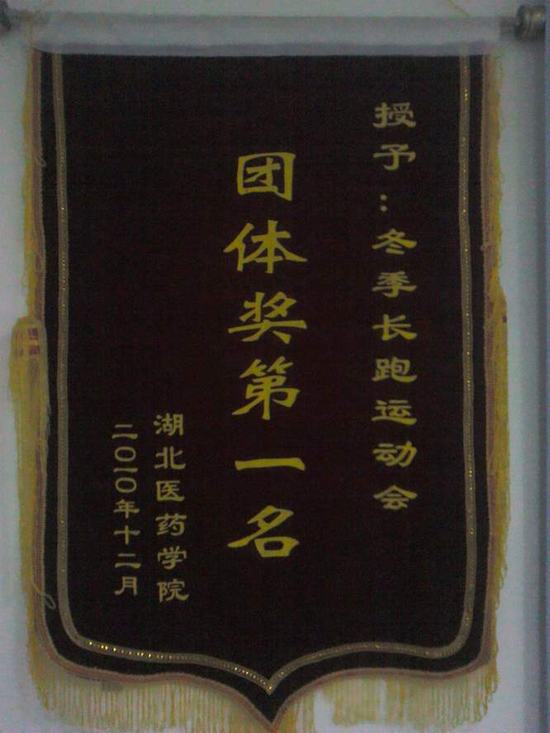 授予：冬季长跑运动会
团体奖第一名
湖北医药学院
二〇一〇年十二月